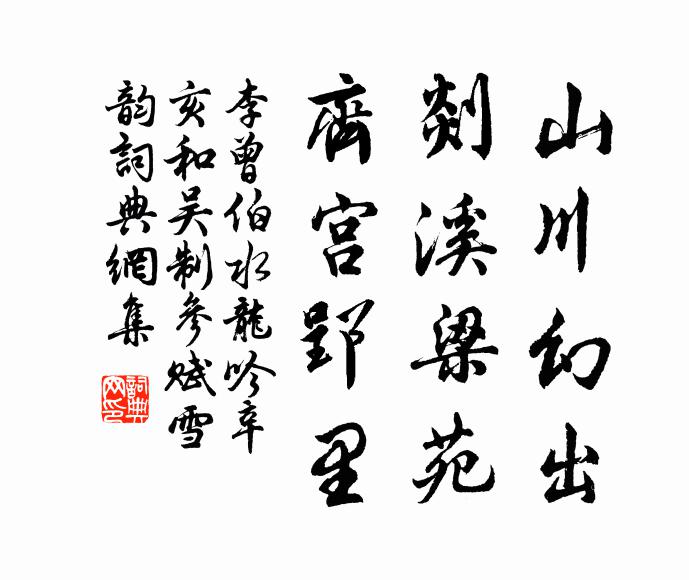 山川幻出
剡溪梁苑
齊宫郢里
李曾伯水龍吟辛
亥和吴制參赋雪
韵詞典網集
詞典网印